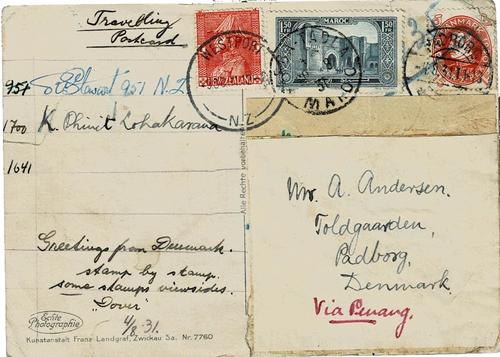 Travelling
Postcard
951 Stewart 951 N.Z
1700 K. Phinit Lohakarand
1641
Greetings from Denmark.
stamp by stamp.
some stamps viewsides.
"Dover"
4/8-31.
Echte
Photographie
Kunstanstalt Franz Landgraf, Zwickau Sa. Nr. 7760
Alle Rechte vorbehalten
WESTPORT
N.Z
NEW ZEALAND
1F50 MAROC 1F50
MAROC
DANMARK
Mr. A. Andersen.
Toldgaarden,
Padborg,
Denmark
Via Penang.